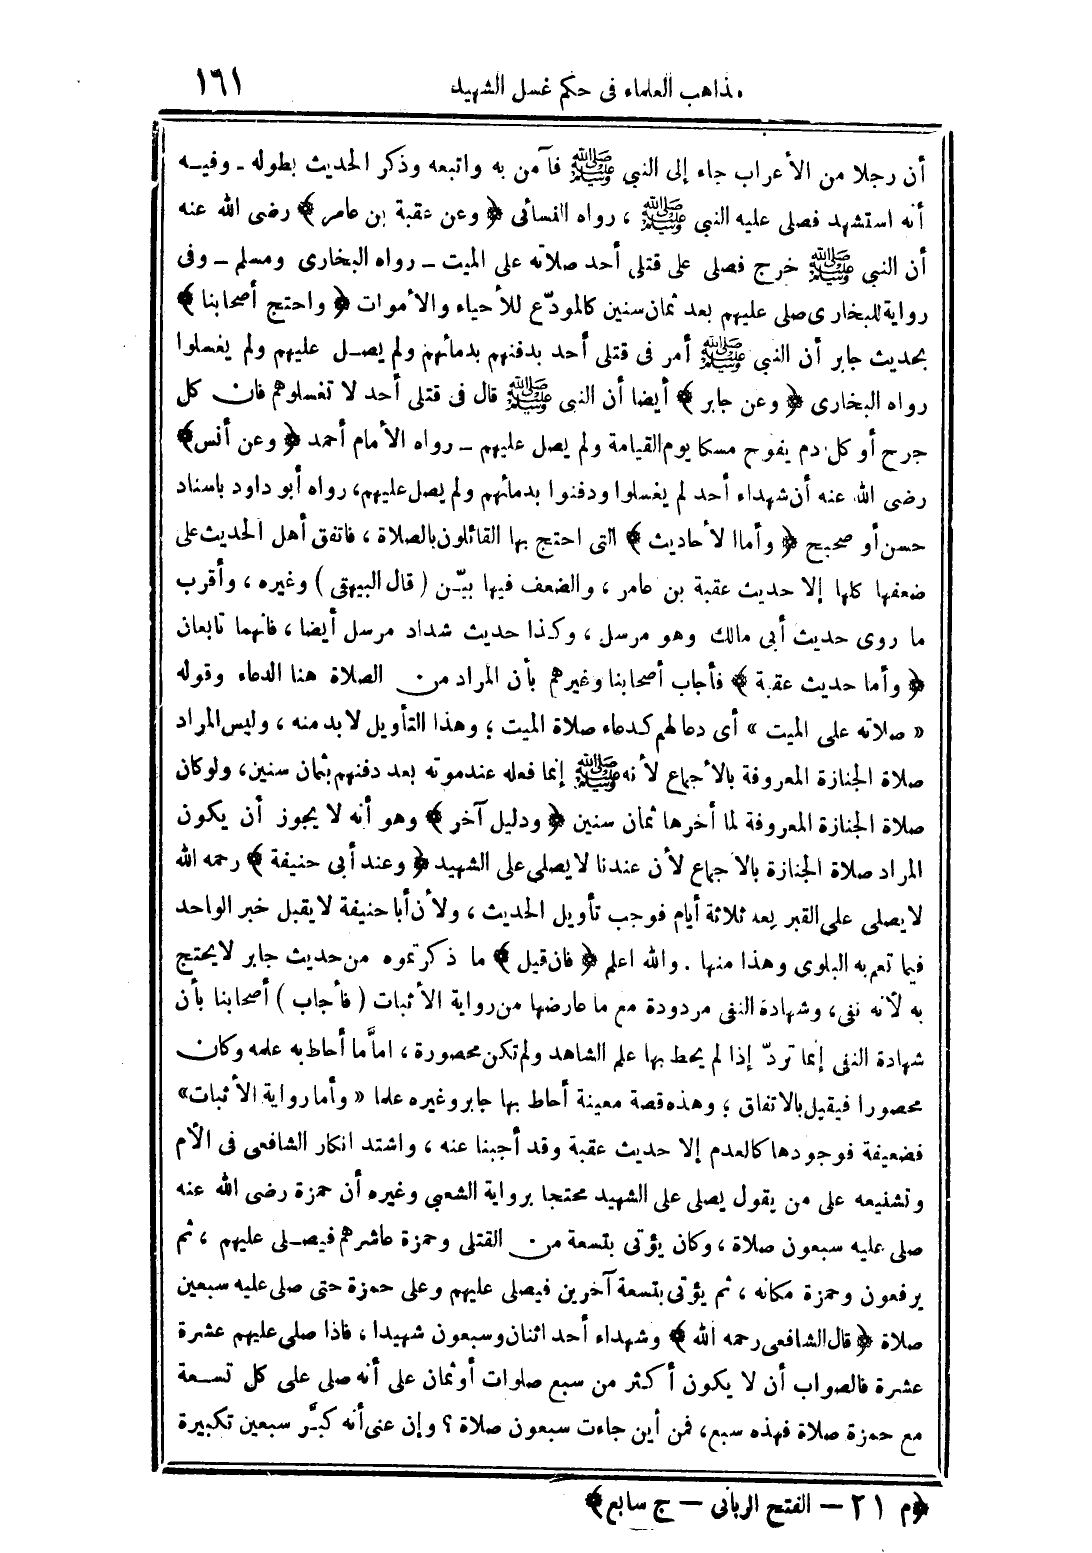 مذاهب العلماء فى حكم غسل الشهيد ١٦١
أن رجلا من الأعراب جاء إلى النبى ﷺ فآمن به واتبعه وذكر الحديث بطوله ـ وفيه
أنه استشهد فصلى عليه النبى ﷺ ، رواه النسائى ﴿ وعن عقبة بن عامر ﴾ رضى الله عنه
أن النبى ﷺ خرج فصلى على قتلى أحد صلاته على الميت ـ رواه البخارى ومسلم ـ وفى
رواية للبخارى صلى عليهم بعد ثمان سنين كالمودّع للأحياء والأموات ﴿ واحتج أصحابنا ﴾
بحديث جابر أن النبى ﷺ أمر فى قتلى أحد بدفنهم بدمائهم ولم يصل عليهم ولم يغسلوا
رواه البخارى ﴿ وعن جابر ﴾ أيضا أن النبى ﷺ قال فى قتلى أحد لا تغسلوهم فان كل
جرح أو كل دم يفوح مسكا يوم القيامة ولم يصل عليهم ـ رواه الأمام أحمد ﴿ وعن أنس ﴾
رضى الله عنه أن شهداء أحد لم يغسلوا ودفنوا بدمائهم ولم يصل عليهم، رواه أبو داود باسناد
حسن أو صحيح ﴿ وأما الأحاديث ﴾ التى احتج بها القائلون بالصلاة ، فاتفق أهل الحديث على
ضعفها كلها إلا حديث عقبة بن عامر ، والضعف فيها بيّن ( قال البيهقى ) وغيره ، وأقرب
ما روى حديث أبى مالك وهو مرسل ، وكذا حديث شداد مرسل أيضا ، فانهما تابعان
﴿ وأما حديث عقبة ﴾ فأجاب أصحابنا وغيرهم بأن المراد من الصلاة هنا الدعاء وقوله
« صلاته على الميت » أى دعا لهم كدعاء صلاة الميت ؛ وهذا التأويل لا بد منه ، وليس المراد
صلاة الجنازة المعروفة بالأجماع لأنه ﷺ إنما فعله عند موته بعد دفنهم بثمان سنين، ولو كان
صلاة الجنازة المعروفة لما أخرها ثمان سنين ﴿ ودليل آخر ﴾ وهو أنه لا يجوز أن يكون
المراد صلاة الجنازة بالاجماع لأن عندنا لا يصلى على الشهيد ﴿ وعند أبى حنيفة ﴾ رحمه الله
لا يصلى على القبر بعد ثلاثة أيام فوجب تأويل الحديث ، ولأن أبا حنيفة لا يقبل خبر الواحد
فيما تعم به البلوى وهذا منها . والله اعلم ﴿ فان قيل ﴾ ما ذكرتموه من حديث جابر لا يحتج
به لأنه نفى، وشهادة النفى مردودة مع ما عارضها من رواية الأثبات ( فأجاب ) أصحابنا بأن
شهادة النفى إنما تردّ إذا لم يحط بها علم الشاهد ولم تكن محصورة ، اماَّ ما أحاط به علمه وكان
محصورا فيقبل بالاتفاق ؛ وهذه قصة معينة أحاط بها جابر وغيره علما « وأما رواية الأثبات»
فضعيفة فوجودها كالعدم إلا حديث عقبة وقد أجبنا عنه ، واشتد انكار الشافعى فى الأم
وتشنيعه على من يقول يصلى على الشهيد محتجا برواية الشعبى وغيره أن حمزة رضى الله عنه
صلى عليه سبعون صلاة ، وكان يؤتى بتسعة من القتلى وحمزة عاشرهم فيصلى عليهم ، ثم
يرفعون وحمزة مكانه ، ثم يؤتى بتسعة آخرين فيصلى عليهم وعلى حمزة حتى صلى عليه سبعين
صلاة ﴿ قال الشافعى رحمه الله ﴾ وشهداء أحد اثنان وسبعون شهيدا ، فاذا صلى عليهم عشرة
عشرة فالصواب أن لا يكون أكثر من سبع صلوات أو ثمان على أنه صلى على كل تسعة
مع حمزة صلاة فهذه سبع، فمن أين جاءت سبعون صلاة ؟ وإن عنى أنه كبَّر سبعين تكبيرة
﴿م ٢١ – الفتح الربانى – ج سابع﴾